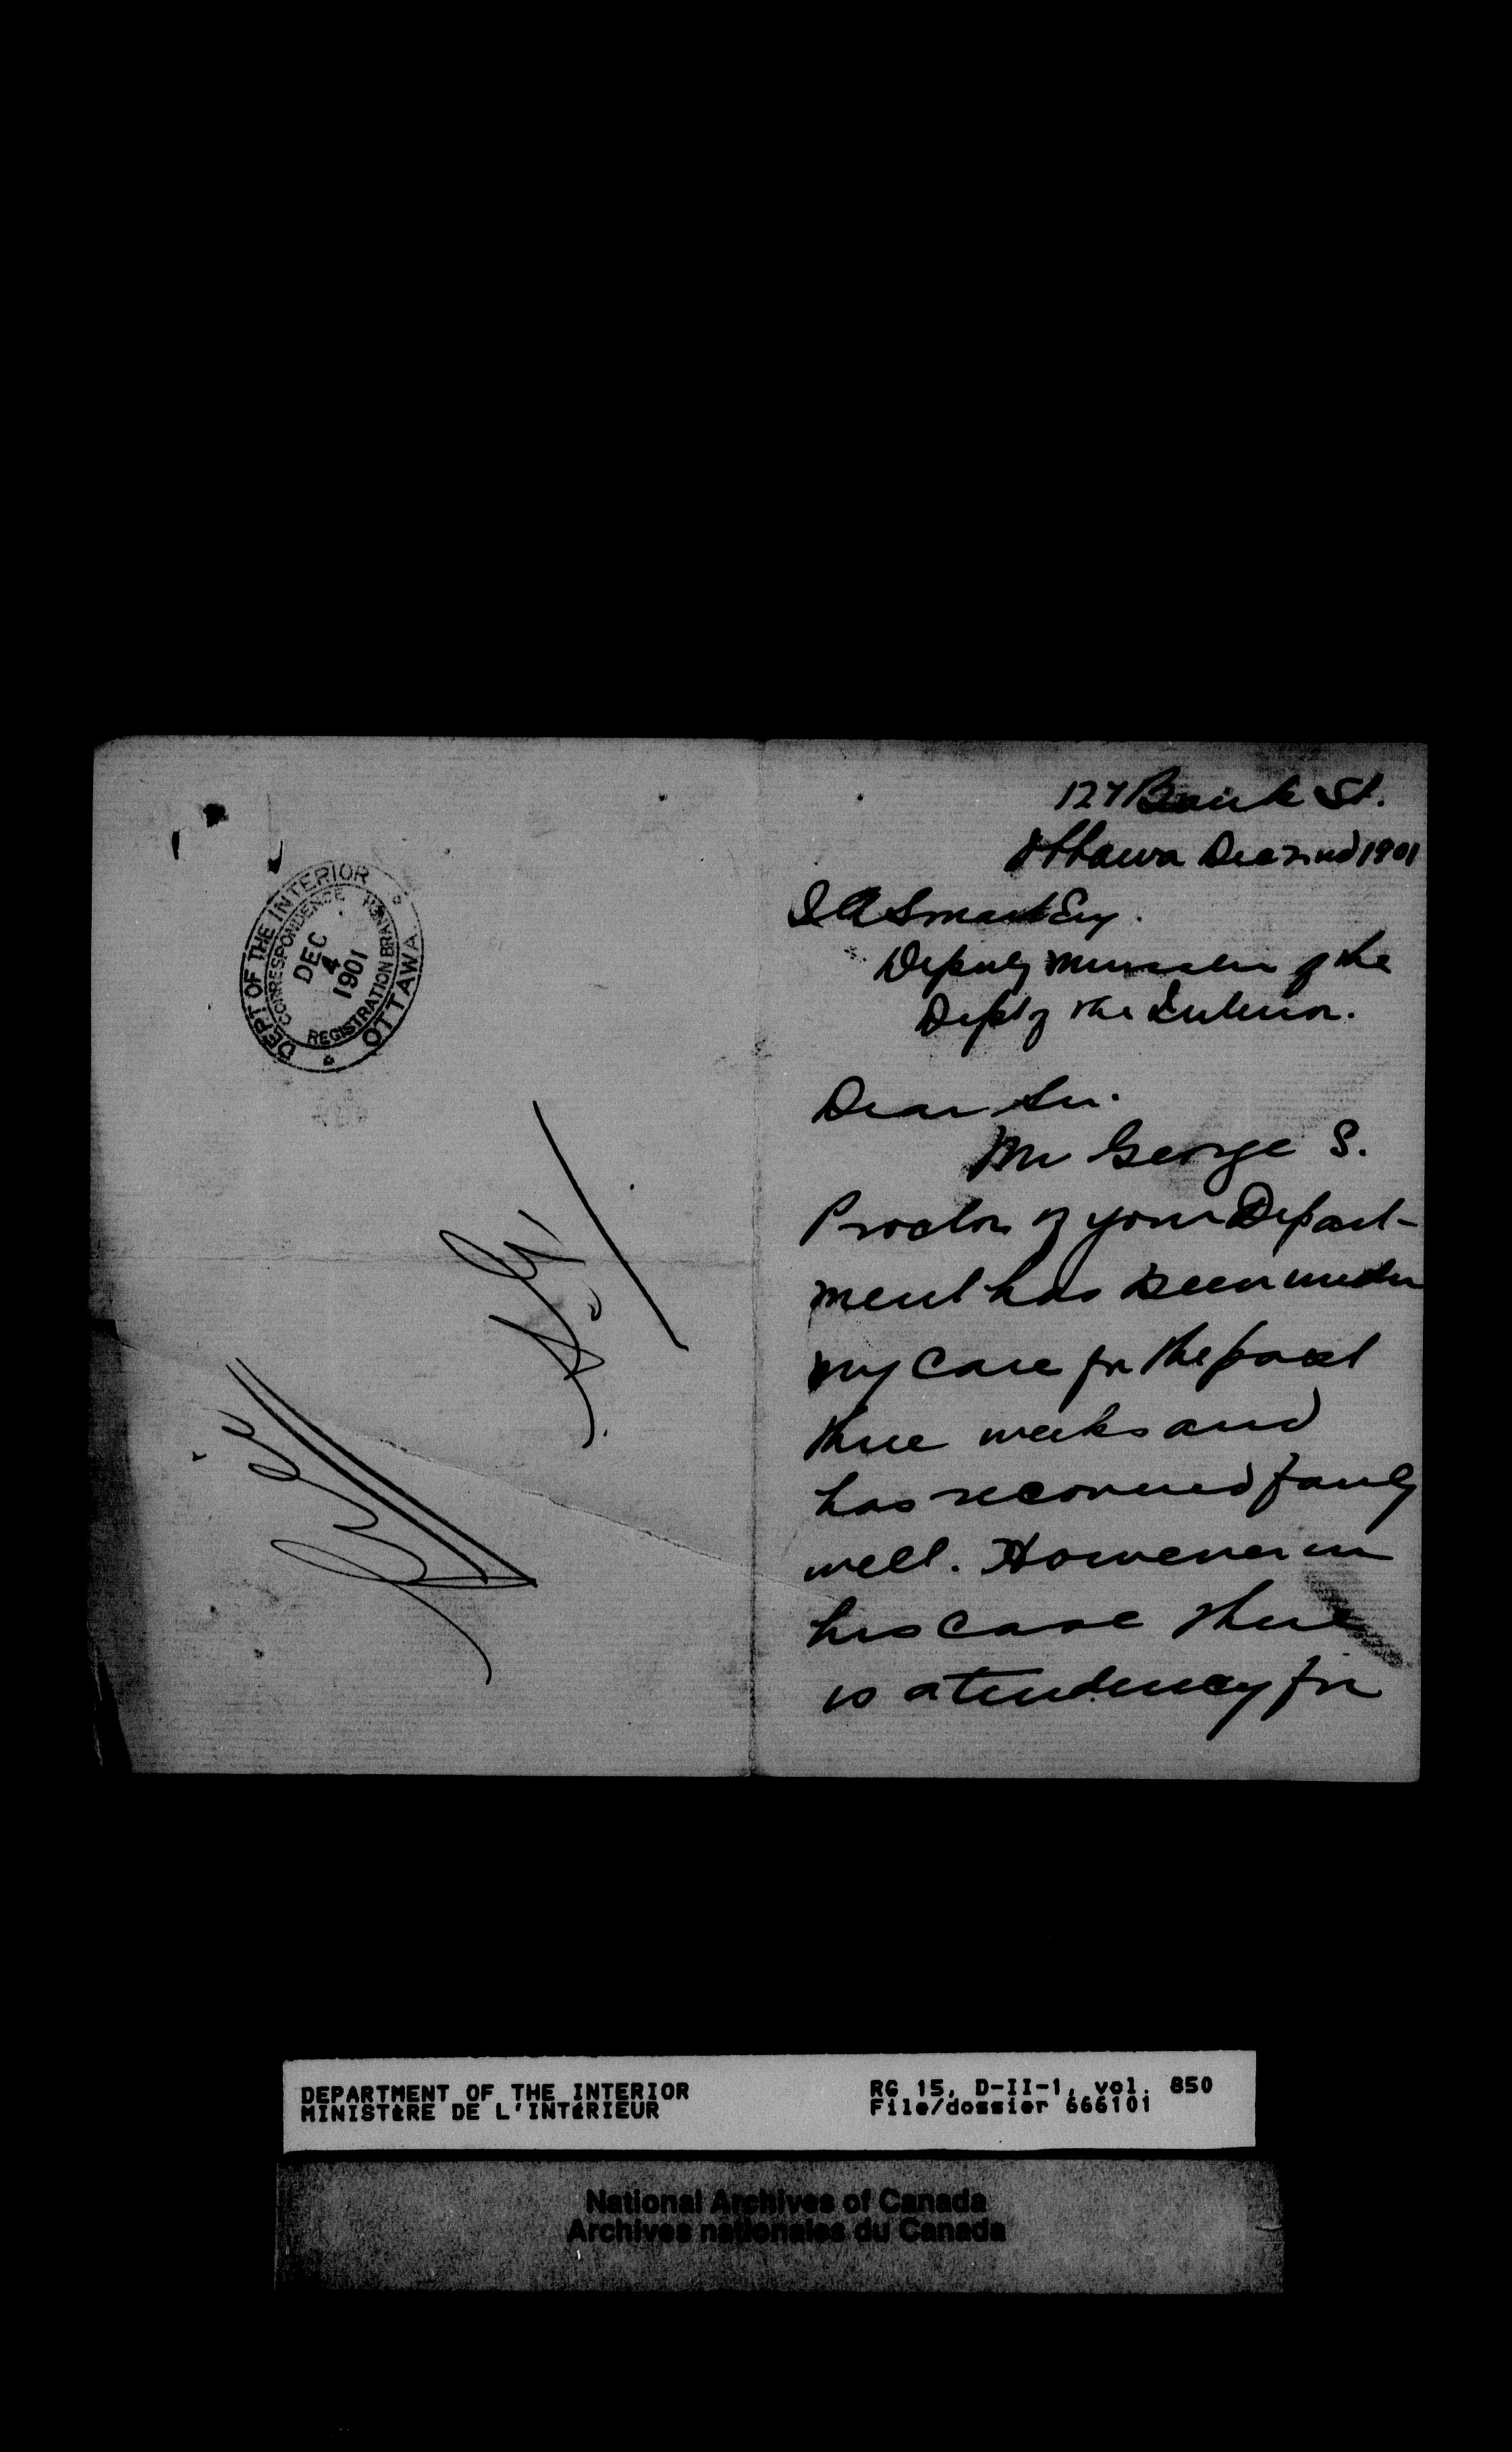 DEPT OF THE INTERIOR
CORRESPONDENCE
DEC
4
1901
REGISTRATION BRANCH
OTTAWA
127 Bank St.
Ottawa Dec 2nd 1901
J A Smart Esq.
Deputy Minister of the
Dept of the Interior.
Dear Sir.
Mr George S.
Proctor of your Depart-
ment has been under
my care for the past
three weeks and
has recovered fairly
well. However in
his case there
is a tendency for
DEPARTMENT OF THE INTERIOR
MINISTÈRE DE L'INTÉRIEUR
RG 15, D-II-1, vol. 850
File/dossier 666101
National Archives of Canada
Archives nationales du Canada